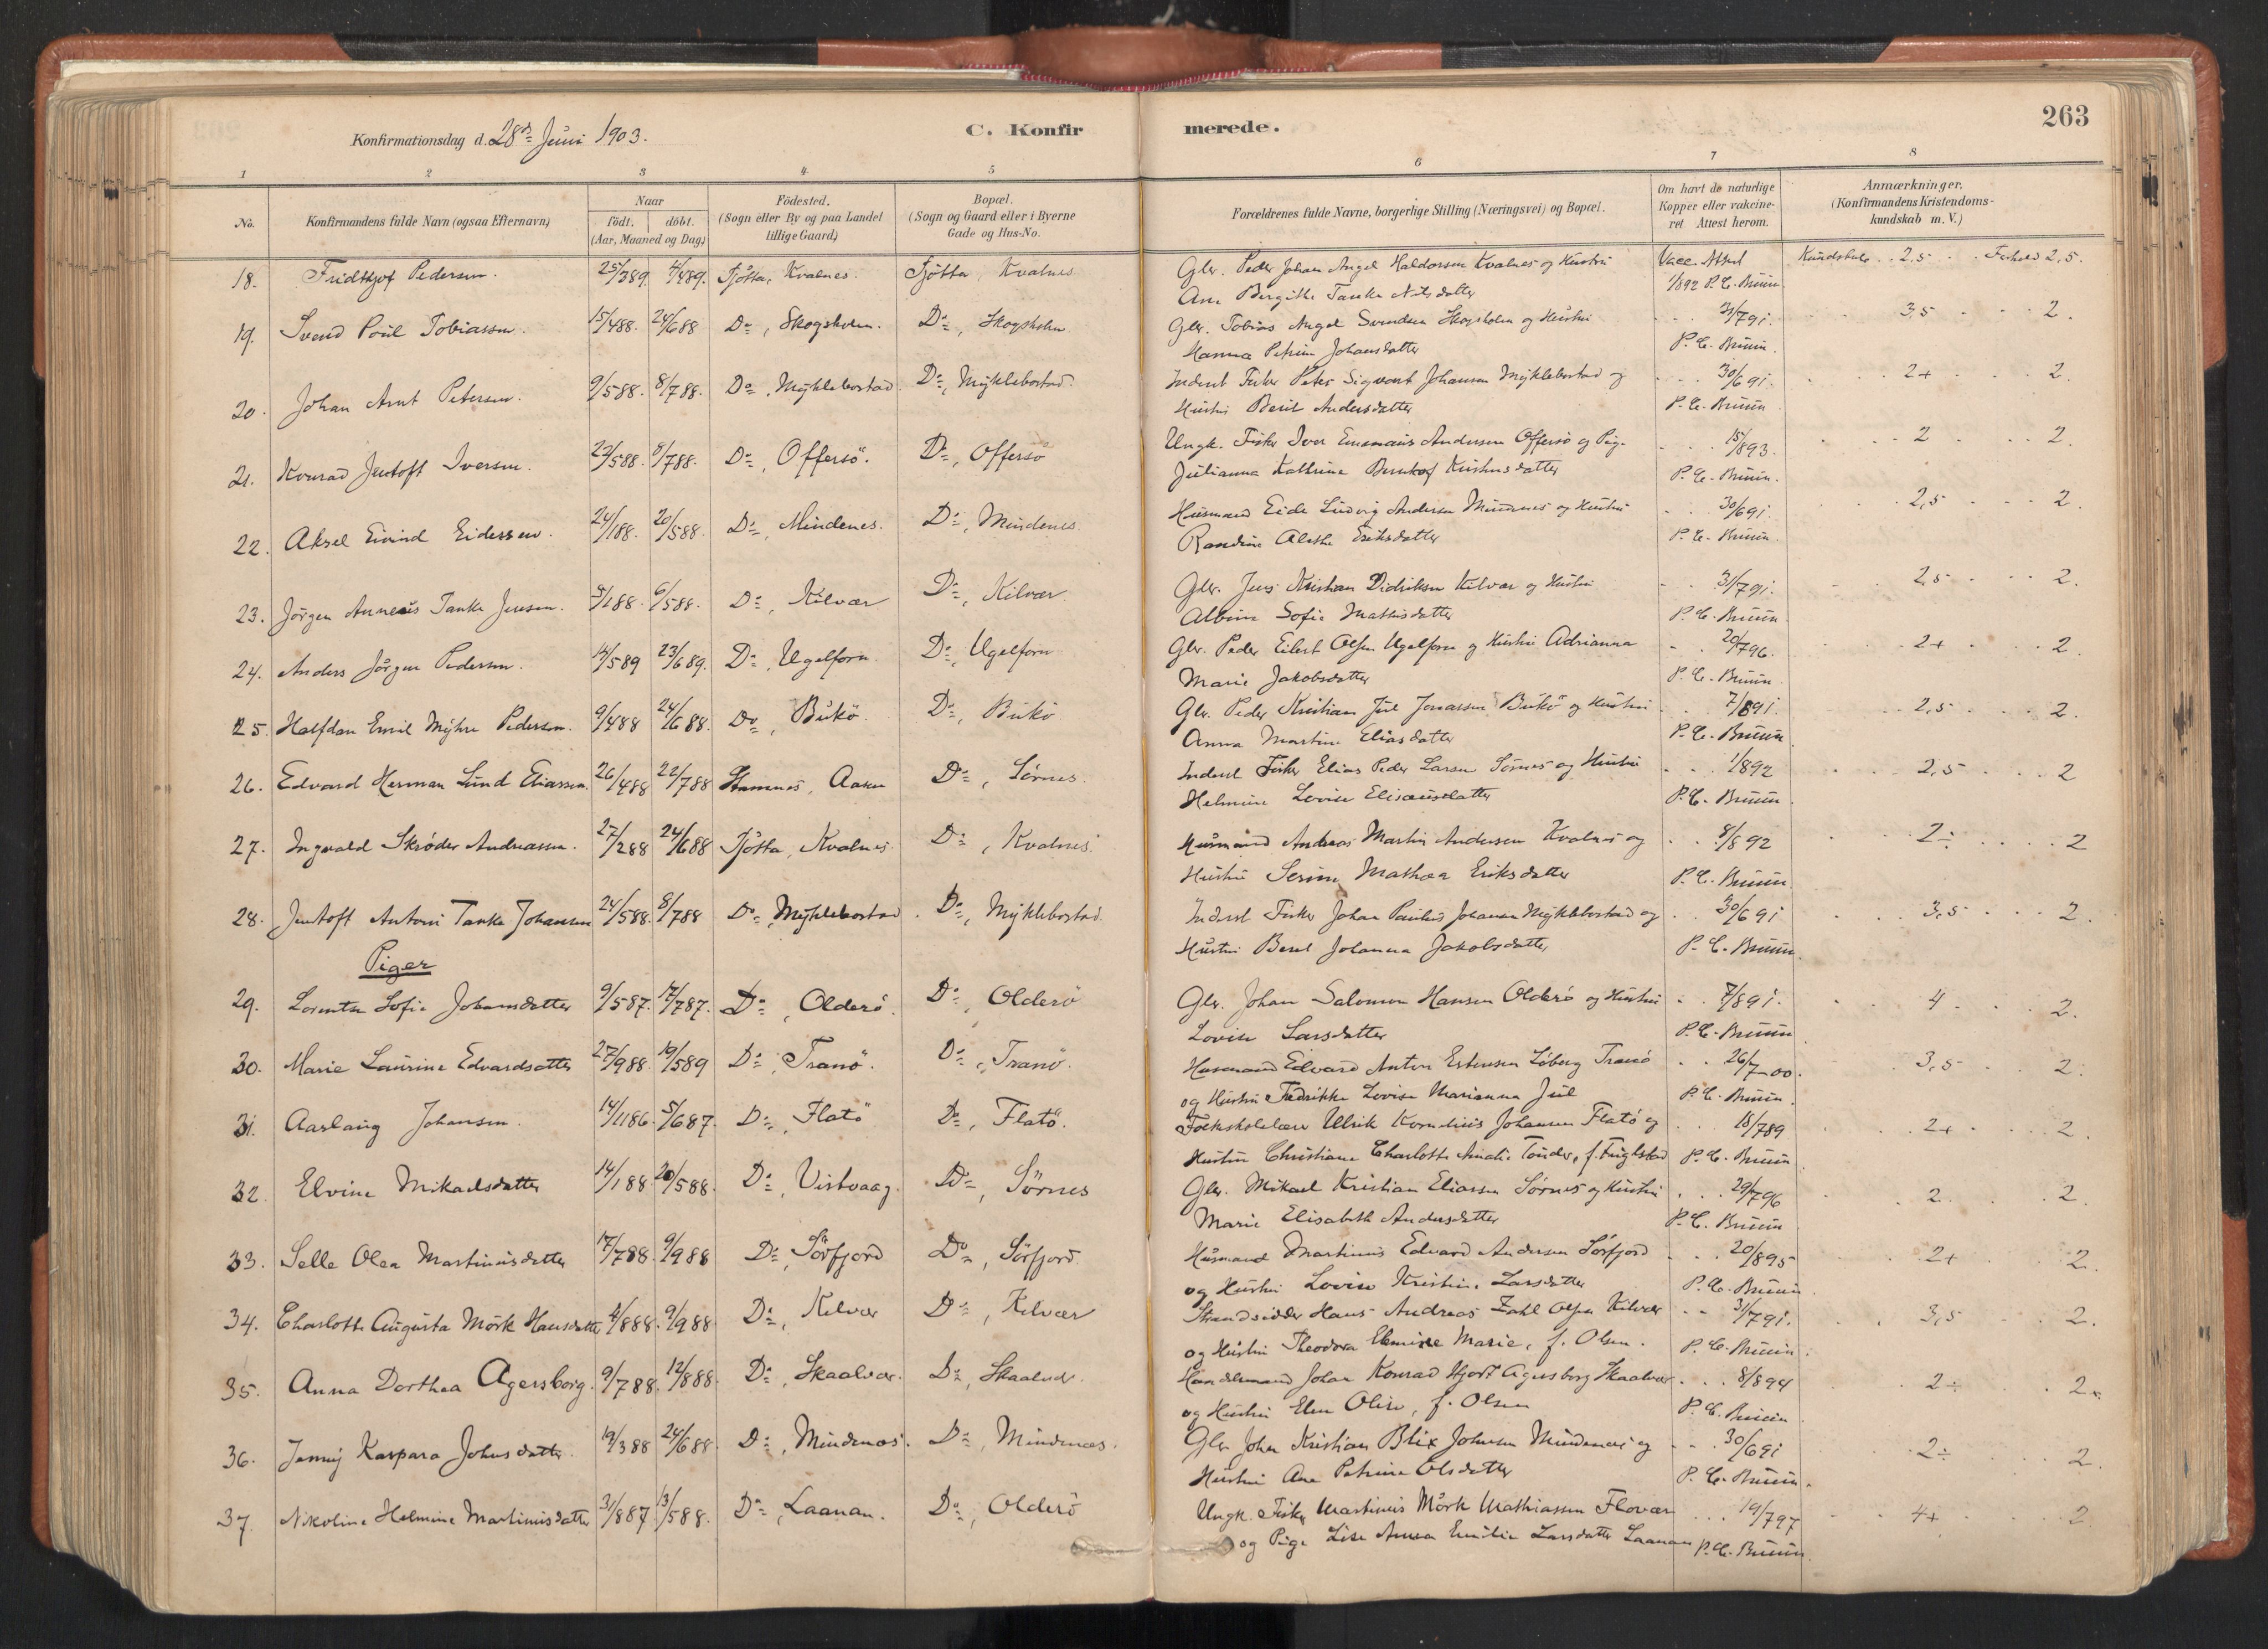 263
Konfirmationsdag d. 28de Juni 1903.
C. Konfirmerede.
1 2 3 4 5 6 7 8
No. Konfirmandens fulde Navn (ogsaa Efternavn) Naar födt. döbt. (Aar, Maaned og Dag) Födested. (Sogn eller By og paa Landet tillige Gaard) Bopæl. (Sogn og Gaard eller i Byerne Gade og Hus-No. Forældrenes fulde Navne, borgerlige Stilling (Næringsvei) og Bopæl. Om havt de naturlige Kopper eller vakcineret Attest herom. Anmærkninger. (Konfirmandens Kristendomskundskab m. V.)
18. Fridthjof Pedersen. 25/389. 4/489. Tjötta, Kvalnes. Tjötta, Kvalnes Gbr. Peder Johan Angel Haldorsen Kvalnes og Hustru Vacc. Attest Kundskab . . 2,5 . . Forhold 2,5.
Ane Bergithe Tanke Nilsdatter 1/892 P. C. Bruun
19. Svend Poul Tobiassen. 15/488. 24/688 Do, Skogsholm. Do, Skogsholm Gbr. Tobias Angel Svendsen Skogsholm og Hustru 31/791. 3,5 2.
Hanna Petrine Johansdatter P. C. Bruun.
20. Johan Arnt Petersen. 9/588. 8/788. Do, Myklebostad. Do, Myklebostad. Inderst Fisker Peter Sigvart Johansen Myklebostad og 30/691. 2+ 2.
Hustru Berit Andersdatter P. C. Bruun
21. Konrad Jentoft Iversen. 22/588. 8/788. Do, Offersö. Do, Offersö Ungk. Fisker Iver Emmaus Andersen Offersö og Pige 15/893. 2 2.
Julianna Kathrine Bernhof Kristensdatter P. C. Bruun.
22. Aksel Eivind Eidessen. 24/188. 20/588. Do, Mindenes. Do, Mindenes. Husmand Eide Ludvig Andersen Mindenes og Hustru 30/691. 2,5 2.
Randine Alethe Eriksdatter P. C. Bruun.
23. Jörgen Anneus Tanke Jensen. 5/188. 6/588. Do, Kilvær Do, Kilvær Gbr. Jens Kristian Didriksen Kilvær og Hustru 31/791. 2,5 2.
Albine Sofie Mathisdatter P. C. Bruun
24. Anders Jörgen Pedersen. 14/589 23/689. Do, Ugelforn Do, Ugelforn Gbr. Peder Eilert Olsen Ugelforn og Hustru Adrianna 29/796. 2+ 2.
Marie Jakobsdatter P. C. Bruun
25. Halfdan Emil Myhre Pedersen. 9/488 24/688. Do, Bukö. Do, Bukö Gbr. Peder Kristian Jul Jonassen Bukö og Hustru 7/891. 2,5 2.
Anna Martine Eliasdatter P. C. Bruun
26. Edvard Herman Lund Eliassen. 26/488 22/788 Stamnes, Aaker Do, Sörnes. Inderst Fisker Elias Peder Larsen Sörnes og Hustru 1/892 2,5 2
Helmine Lovise Eliseusdatter P. C. Bruun.
27. Ingvald Skrøder Andreassen. 27/288 24/688 Tjötta, Kvalnes Do, Kvalnes. Husmand Andreas Martin Andersen Kvalnes og 8/892 2÷ 2
Hustru Serine Mathea Eriksdatter P. C. Bruun
28. Jentoft Antoni Tanke Johansen 24/588. 8/788 Do, Myklebostad. Do, Myklebostad Inderst Fisker Johan Paulus Johansen Myklebostad og 30/691 3,5 2.
Hustru Beret Johanna Jakobsdatter P. C. Bruun
Piger
29. Lorentse Sofie Johansdatter 9/587. 17/787. Do, Olderö. Do, Olderö Gbr. Johan Salomon Hansen Olderö og Hustru 7/891. 4 2.
Lovise Larsdatter P. C. Bruun
30. Marie Laurine Edvardsdatter 27/988. 19/589 Do, Tranö. Do, Tranö. Husmand Edvard Anton Estensen Löberg Tranö 26/7-00. 3,5 2.
og Hustru Fredrikke Lovise Marianna Juul P. C. Bruun.
31. Aaslaug Johansen. 14/1186. 5/687. Do, Flatö Do, Flatö. Folkeskolelærer Ulrik Kornelius Johansen Flatö og 18/789 2+ 2.
Hustru Christiane Charlotte Amalie Tønder, f. P. C. Bruun
32. Elvine Mikaelsdatter 14/188 20/588. Do, Vistvaag. Do, Sörnes Gbr. Mikael Kristian Eliassen Sörnes og Hustru 29/796 2 2
Marie Elisabeth Andersdatter P. C. Bruun
33. Selle Olea Martinusdatter 17/788. 9/988 Do, Sörfjord Do, Sörfjord. Husmand Martinus Edvard Andersen Sörfjord 20/895 2+ 2.
og Hustru Lovise Kristine Larsdatter P. C. Bruun
34. Charlotte Augusta Mörk Hansdatter 4/888. 9/988 Do, Kilvær Do, Kilvær Strandsidder Hans Andreas Zahl Olsen Kilvær 31/791. 3,5 2.
og Hustru Theodora Marie, f. Olsen. P. C. Bruun.
35. Anna Dorthea Agersborg. 9/788. 12/888. Do, Skaalvær. Do, Skaalvær Handelsmand Johan Konrad Hjort Agersborg Skaalvær 8/894 2÷ 2.
og Hustru Elen Olise, f. Olsen P. C. Bruun.
36. Jenny Kaspara Johnsdatter. 19/388 24/688. Do, Mindenæs. Do, Mindenæs. Gbr. Johan Kristian Blix Johnsen Mindenæs og 30/691 2÷ 2.
Hustru Ane Petrine Olsdatter P. C. Bruun.
37. Nikoline Helmine Martinusdatter 31/887. 13/588. Do, Laanan. Do, Olderö Ungk. Fisker Martinus Mörk Mathiassen Flovær 19/797 4+ 2
og Pige Lise Anna Emilie Larsdatter Laanan P. C. Bruun.